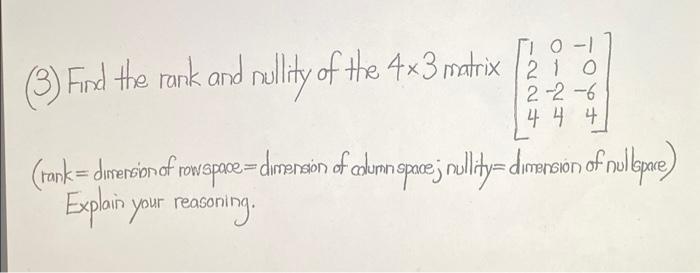 (3) Find the rank and nullity of the 4×3 matrix [1 0 -1
2 1 0
2 -2 -6
4 4 4]
(rank = dimension of rowspace = dimension of column space; nullity = dimension of nullspace)
Explain your reasoning.